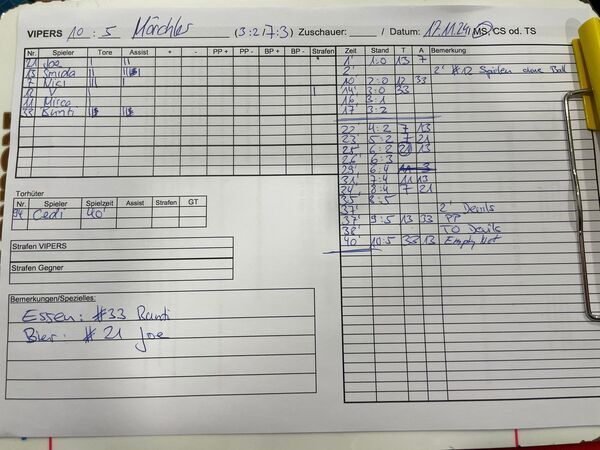 VIPERS 10 : 5 Mörchler (3:2/7:3) Zuschauer: / Datum: 17.11.24 MS, CS od. TS
Nr. Spieler Tore Assist + - PP + PP - BP + BP - Strafen
21 Joe
13 Smida
7 Nisi
12 V
11 Mirco
33 Bunti
Torhüter
Nr. Spieler Spielzeit Assist Strafen GT
94 Cedi 40'
Strafen VIPERS
Strafen Gegner
Bemerkungen/Spezielles:
Essen: #33 Bunti
Bier: #21 Joe
Zeit Stand T A Bemerkung
1' 1:0 13 7
2' 2' #12 Spielen ohne Ball
10' 2:0 12 33
14' 3:0 33
16' 3:1
17' 3:2
22' 4:2 7 13
23' 5:2 7 21
25' 6:2 21 13
26' 6:3
29' 6:4 11 3
31' 7:4 11 13
8:4 7 21
35' 8:5
37' 2' Devils
37' 9:5 13 33 PP
38' TO Devils
40' 10:5 33 13 Empty Net